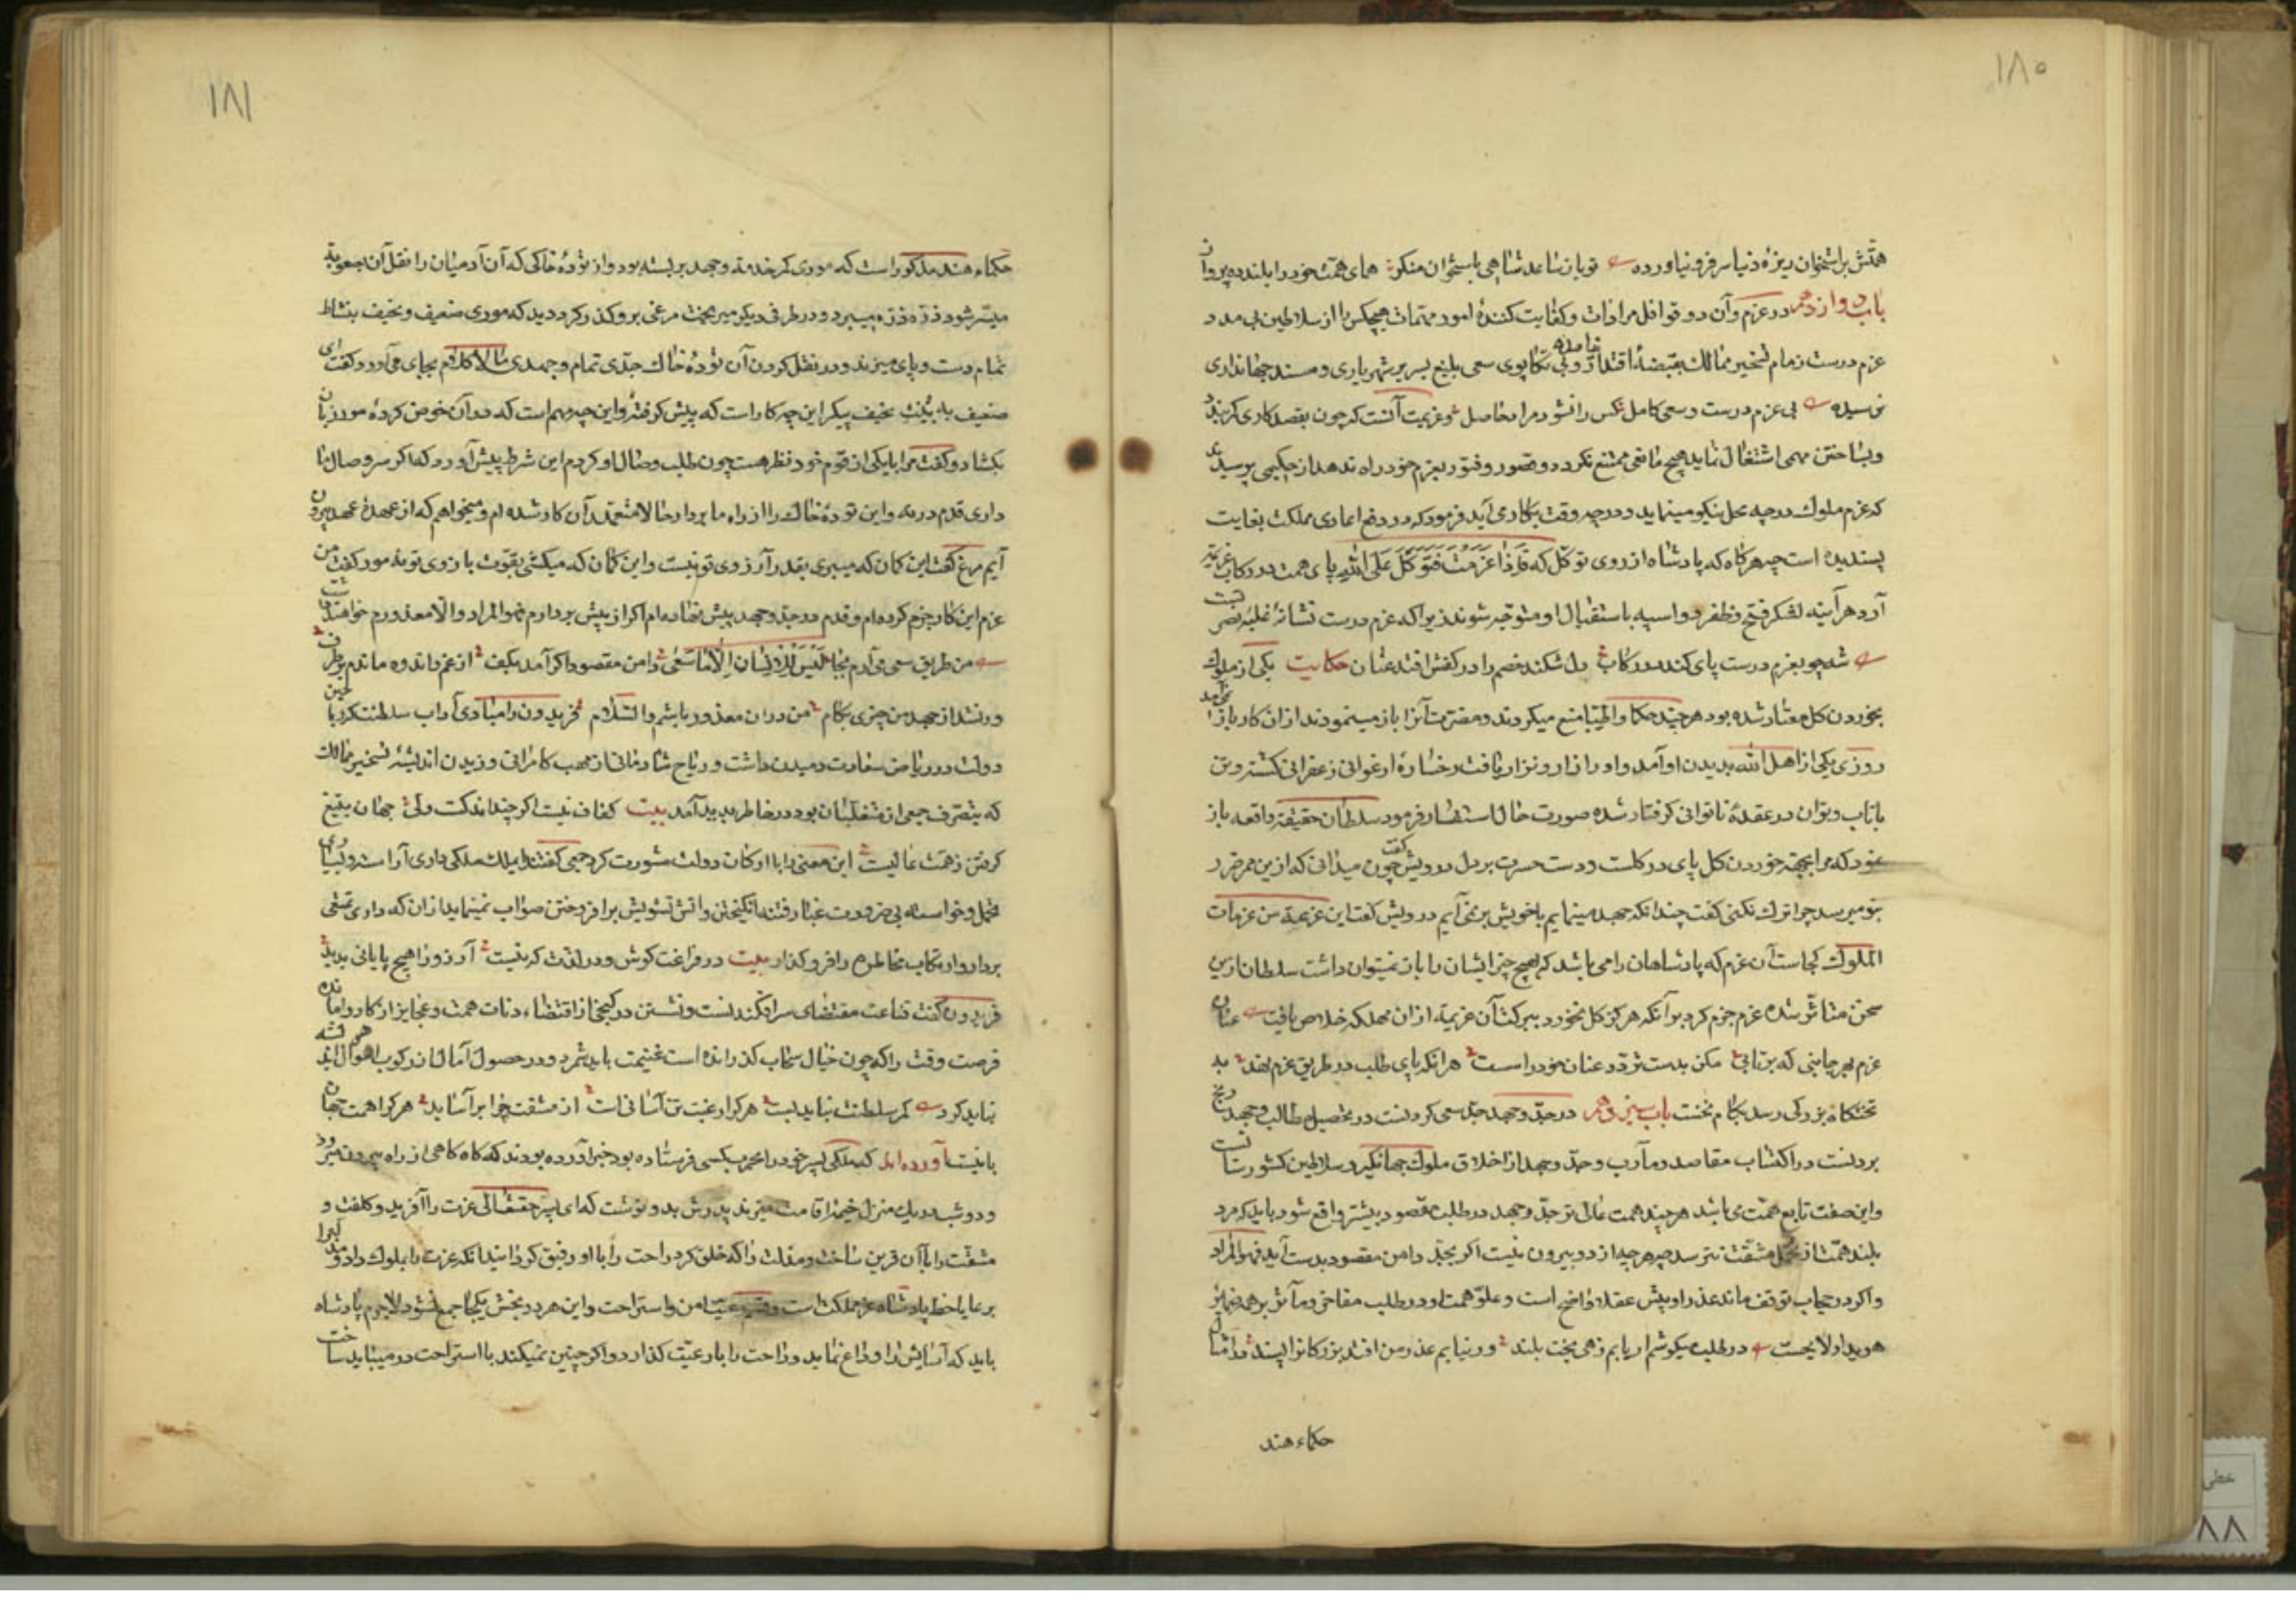 ۱۸۰
همتش براستخوان ریزهٔ دنیا سر فرو نیاورده تو باز ساعد شاهی باستخوان منکر همای همت خود را بلند ده پرواز
باب دوازدهم در عزم و آن رد قوافل مرادات و کفایت کنندهٔ امور مهمات هیچکس را از سلاطین بی مدد
عزم درست زمام تسخیر ممالک بقبضهٔ اقتدار و بی تکاپوی سعی بلیغ بسریر شهریاری و مسند جهانداری
نرسیده بی عزم درست و سعی کامل کس را نشود مراد حاصل و عزیمت آنست که چون بقصد کاری کمر بندد
و بساختن مهمی اشتغال نماید هیچ مانعی ممتنع نکردد و قصور و فتور بعزم خود راه ندهد از حکیمی پرسیدند
که عزم ملوک در چه محل نیکو مینماید و در چه وقت بکار می آید فرمود که در دفع اعادی مملکت بغایت
پسندیده است چه هر کاه که پادشاه از روی توکل که فَاِذَا عَزَمْتَ فَتَوَکَّلْ عَلَی اللهِ پای همت در رکاب عزیمت
آرد هر آینه لشکر فتح و ظفر دو اسپه باستقبال او متوجه شوند زیرا که عزم درست نشانهٔ غلبه نصرتست
شه چو بعزم درست پای کند در رکاب دل شکند خصم را در کفش افتد عنان حکایت یکی از ملوک
بخوردن کل معتاد شده بود هر چند حکما و اطبا منع میکردند و مضرت آنرا باز مینمودند ازان کار باز
روزی یکی از اهل الله بدیدن او آمد و او را زار و نزار یافت رخسارهٔ ارغوانی زعفرانی کشته و تن
با تاب و توان در عقدهٔ ناتوانی کرفتار شده صورت حال استفسار فرمود سلطان حقیقت واقعه باز
نمود که مرا بجهة خوردن کل پای در کلست و دست حسرت بر دل درویش گفت چون میدانی که ازین ممر ضرر
بتو میرسد چرا ترک نکنی کفت چندانکه جهد مینمایم با خویش بر نمی آیم درویش کفت این عزیمة من عزمات
الملوک کجاست آن عزم که پادشاهان را می باشد که هیچ چیز ایشان را باز نمیتوان داشت سلطان ازین
سخن متأثر شده عزم جزم کرد بر آنکه هرکز کل نخورد ببرکت آن عزیمة از ان مهلکه خلاص یافت عنان
عزم بهر جانبی که برتابی مکن بدست تردد عنان خود را سست هر انکه پای طلب در طریق عزم نهد بد
تختکاه بزرکی رسد بکام نخست باب سیزدهم در جد و جهد جد سعی کردنست در تحصیل مطالب و جهد رنج
بردنست در اکتساب مقاصد و مآرب و جد و جهد از اخلاق ملوک جهانکیر و سلاطین کشورستانست
و این صفت تابع همت می باشد هر چند همت عالی تر جد و جهد در طلب مقصود بیشتر واقع شود باید که مرد
بلند همت از تحمل مشقت نترسد چه هر چه از دو بیرون نیست اکر بجد دامن مقصود بدست آید فهو المراد
و اکر در حجاب توقف ماند عذر او پیش عقلا واضح است و علو همت او در طلب مفاخر و مآثر بر همه ضمایر
هویدا و لایحست در طلب میکوشم ار یابم زهی بخت بلند ور نیابم عذر من افتد بزرکانرا پسند در امثال
حکماء هند
۱۸۱
حکماء هند مذکور است که موری کمر خدمة و جهد بربسته بود و از تودهٔ خاکی که آن آدمیان را نقل آن بصعوبة
میسر شود ذره ذره میبرد و در طرفی دیکر میریخت مرغی برو کذر کرد دید که موری ضعیف و نحیف بنشاط
تمام دست و پای میزند و در نقل کردن آن تودهٔ خاک جدی تمام و جهدی مالا کلام بجای می آورد کفت ای
ضعیف بدنیت نحیف پیکر این چه کار است که پیش کرفتهٔ و این چه مهم است که در آن خوض کردهٔ مور زبان
بکشاد و کفت مرا با یکی از قوم خود نظر هست چون طلب وصال او کردم این شرط پیش آورد که اکر سر وصال ما
داری قدم در نه و این تودهٔ خاک را از راه ما بردار حالا متعهد آن کار شده ام و میخواهم که از عهدهٔ عهد بیرون
آیم مرغ کفت این کمان که میبری بقدر آرزوی تو نیست و این کمان که میکشی بقوت بازوی تو نه مور کفت من
عزم این کار جزم کرده ام و قدم در جد و جهد پیش نهاده ام اکر از پیش بردارم فهو المراد و الا معذورم خواهند داشت
من طریق سعی می آرم بجا لَیْسَ لِلْاِنْسَانِ اِلَّا مَا سَعَی دامن مقصود اکر آمد بکف از غم و اندوه ماندم بر طرف
ور نشد از جهد من چیزی بکام من دران معذور باشم والسلام فریدون را مبادی آداب سلطنت که ریاحین
دولت در ریاض سعادت دمیدن داشت و ریاح شادمانی از مهب کامرانی وزیدن اندیشهٔ تسخیر ممالک
که بتصرف جمعی از متغلبان بود در خاطر پدید آمد بیت کفاف نیست اکر چند اندکت ولی جهان بتیغ
کرفتن ز همت عالیست این معنی را با ارکان دولت مشورت کرد جمعی کفتند ایملک ملکی داری آراسته و بسیاری
تجمل و خواسته بی ضرورت غبار فتنه انکیختن و آتش تشویش برافروختن صواب نمینماید از ان که داری تمتعی
بردار و ارتکاب مخاطره را فرو کذار بیت در فراغت کوش و در لذت که نیست آرزو را هیچ پایانی پدید
فریدون کفت قناعت مقتضای سرافکندنست و نشستن در کنجی از اقتضاء دنائت همت و عجایز از کار و امانده
فرصت وقت را که چون خیال سحاب کذرانده است غنیمت باید شمرد و در حصول آمال از رکوب اهوال اندیشه
نباید کرد کمر سلطنت نباید بست هر کرا رغبت تن آسانی است از مشقت چرا بر آساید هر کرا همت جهان
بانیست آورده اند که ملکی پسر خود را بحرب کسی فرستاده بود خبر آورده بودند که کاه کاهی از راه بیرون میرود
و دو شب در یک منزل خیمهٔ اقامت میزند پدرش بدو نوشت که ای پسر حقتعالی عزت را آفرید و کلفت و
مشقت را با آن قرین ساخت و مذلت را که خلق کرد راحت را با او رفیق کردانید انکه عزت را بملوک داد و
بر عایا حظ پادشاه عز مملکت است و رعیت امن و استراحت و این هر دو بخش یکجا جمع نشود لاجرم پادشاه
باید که آسایش را وداع نماید و راحت را با رعیت کذارد و اکر چنین نمیکند با استراحت در میباید ساخت
خطی
۸۸